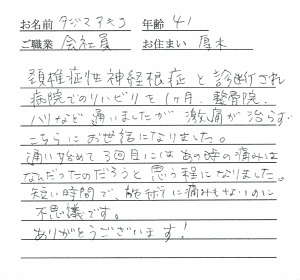 お名前 タジマアキコ 年齢 41
ご職業 会社員 お住まい 厚木
頚椎症性神経根症と診断され
病院でのリハビリを1ヶ月、整骨院、
ハリなど通いましたが激痛が治らず
こちらにお世話になりました。
通い始めて3回目にはあの時の痛みは
なんだったのだろうと思う程になりました。
短い時間で、施術に痛みもないのに
不思議です。
ありがとうございます!